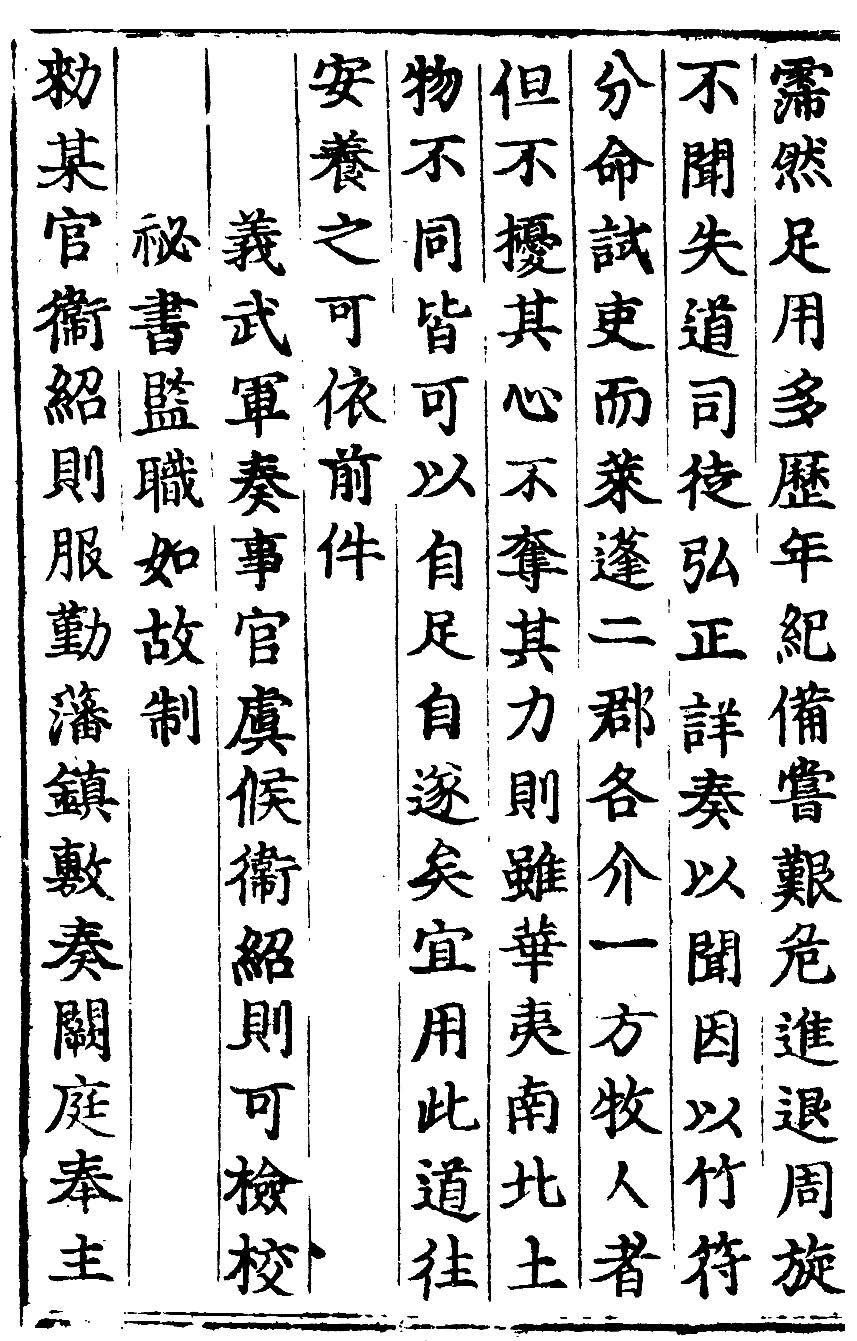 霈然足用多歷年紀備嘗艱危進退周旋
不聞失道司徒弘正詳奏以聞因以竹符
分命試吏而萊蓬二郡各介一方牧人者
但不擾其心不奪其力則雖華夷南北土
物不同皆可以自足自遂矣宜用此道往
安養之可依前件
義武軍奏事官虞候衞紹則可檢校
祕書監職如故制
勑某官衞紹則服勤藩鎮敷奏闕庭奉主